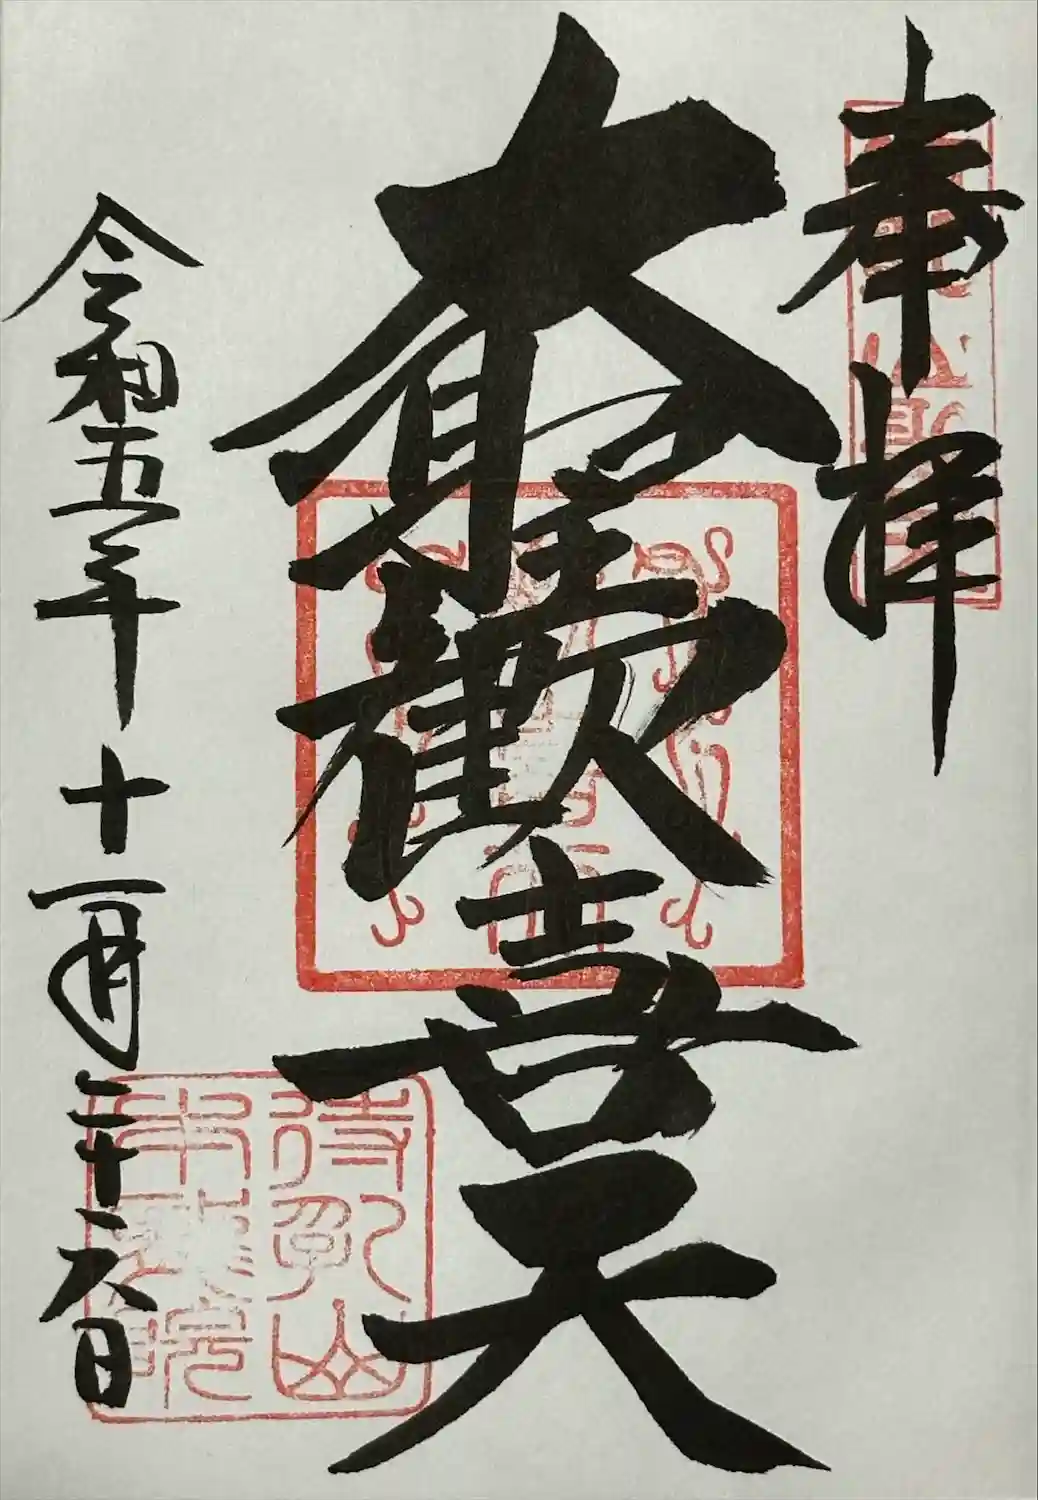 奉拝
大聖歓喜天
令和五年十一月二十六日
待乳山
本龍院